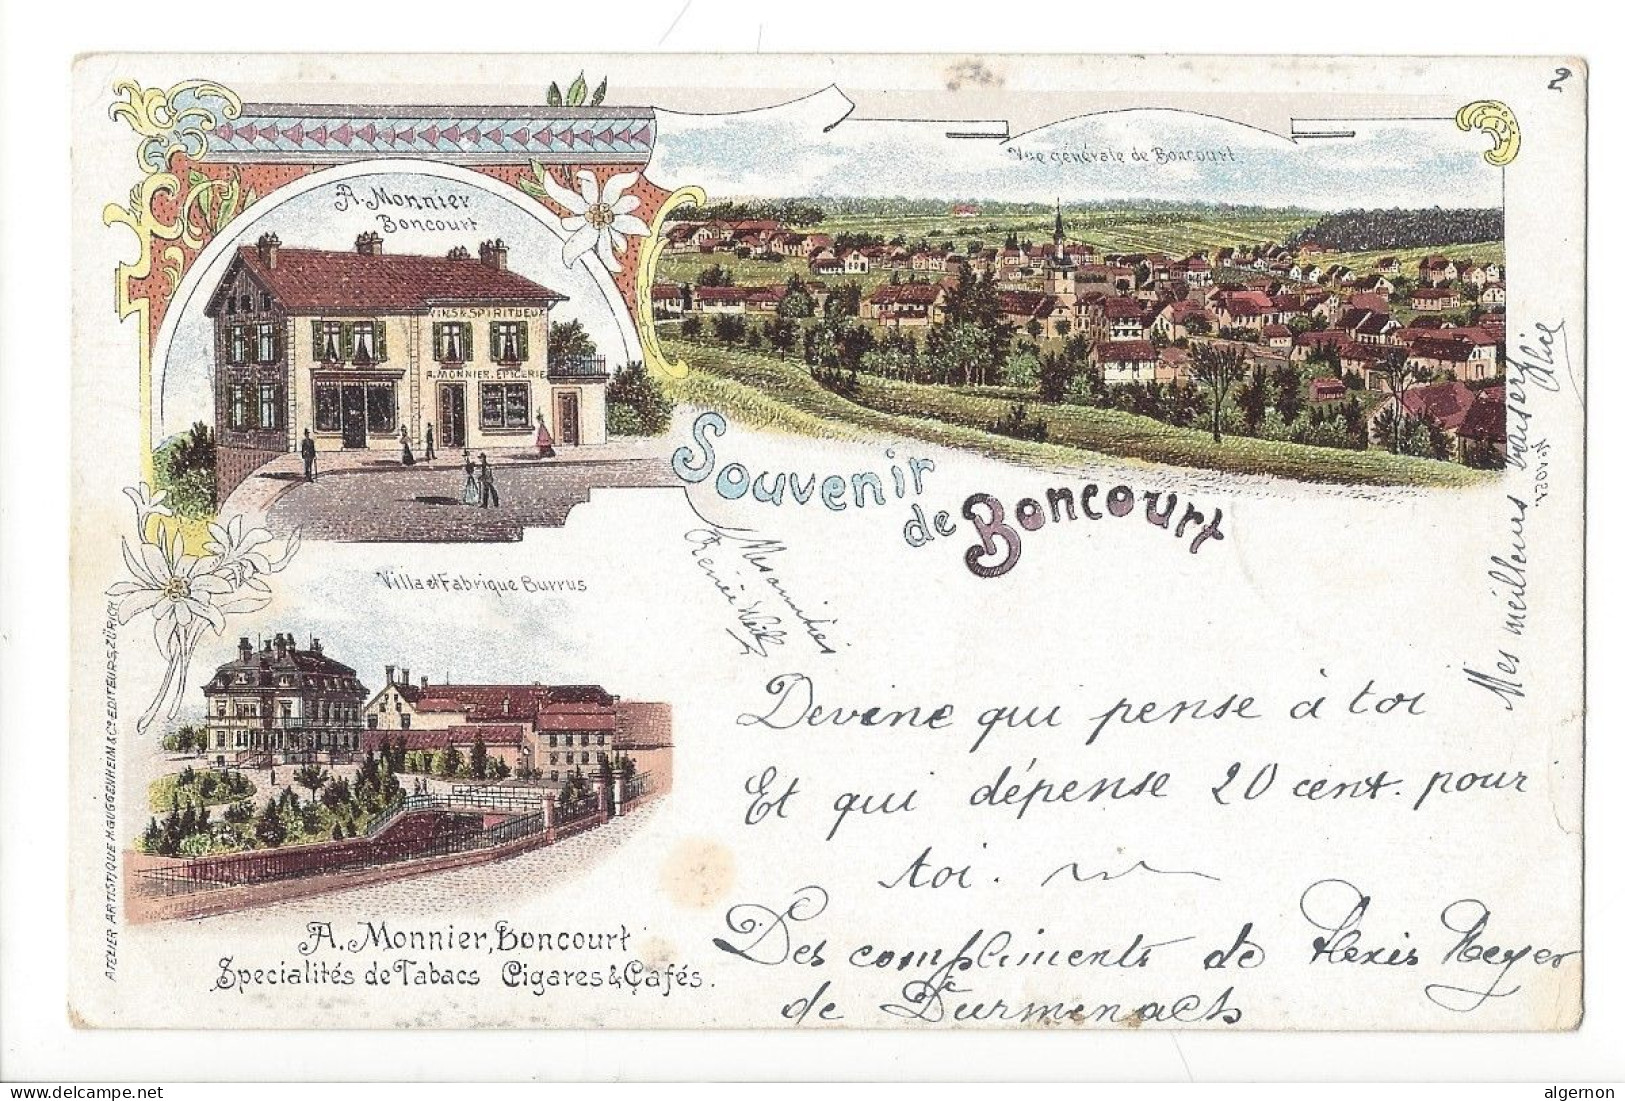 2
Vue générale de Boncourt
A. Monnier
Boncourt
VINS & SPIRITUEUX
A. MONNIER. EPICERIE
Souvenir
de Boncourt
Villa et Fabrique Burrus
Mes amitiés
Renée Weill
Mes meilleurs baisers
No 7051
Devine qui pense à toi
Et qui dépense 20 cent. pour
toi.
Des compliments de Alexis Meyer
de Durmenach
A. Monnier, Boncourt
Specialités de Tabacs Cigares & Cafés.
ATELIER ARTISTIQUE H. GUGGENHEIM & Co. EDITEURS, ZÜRICH
delcampe.net
algernon